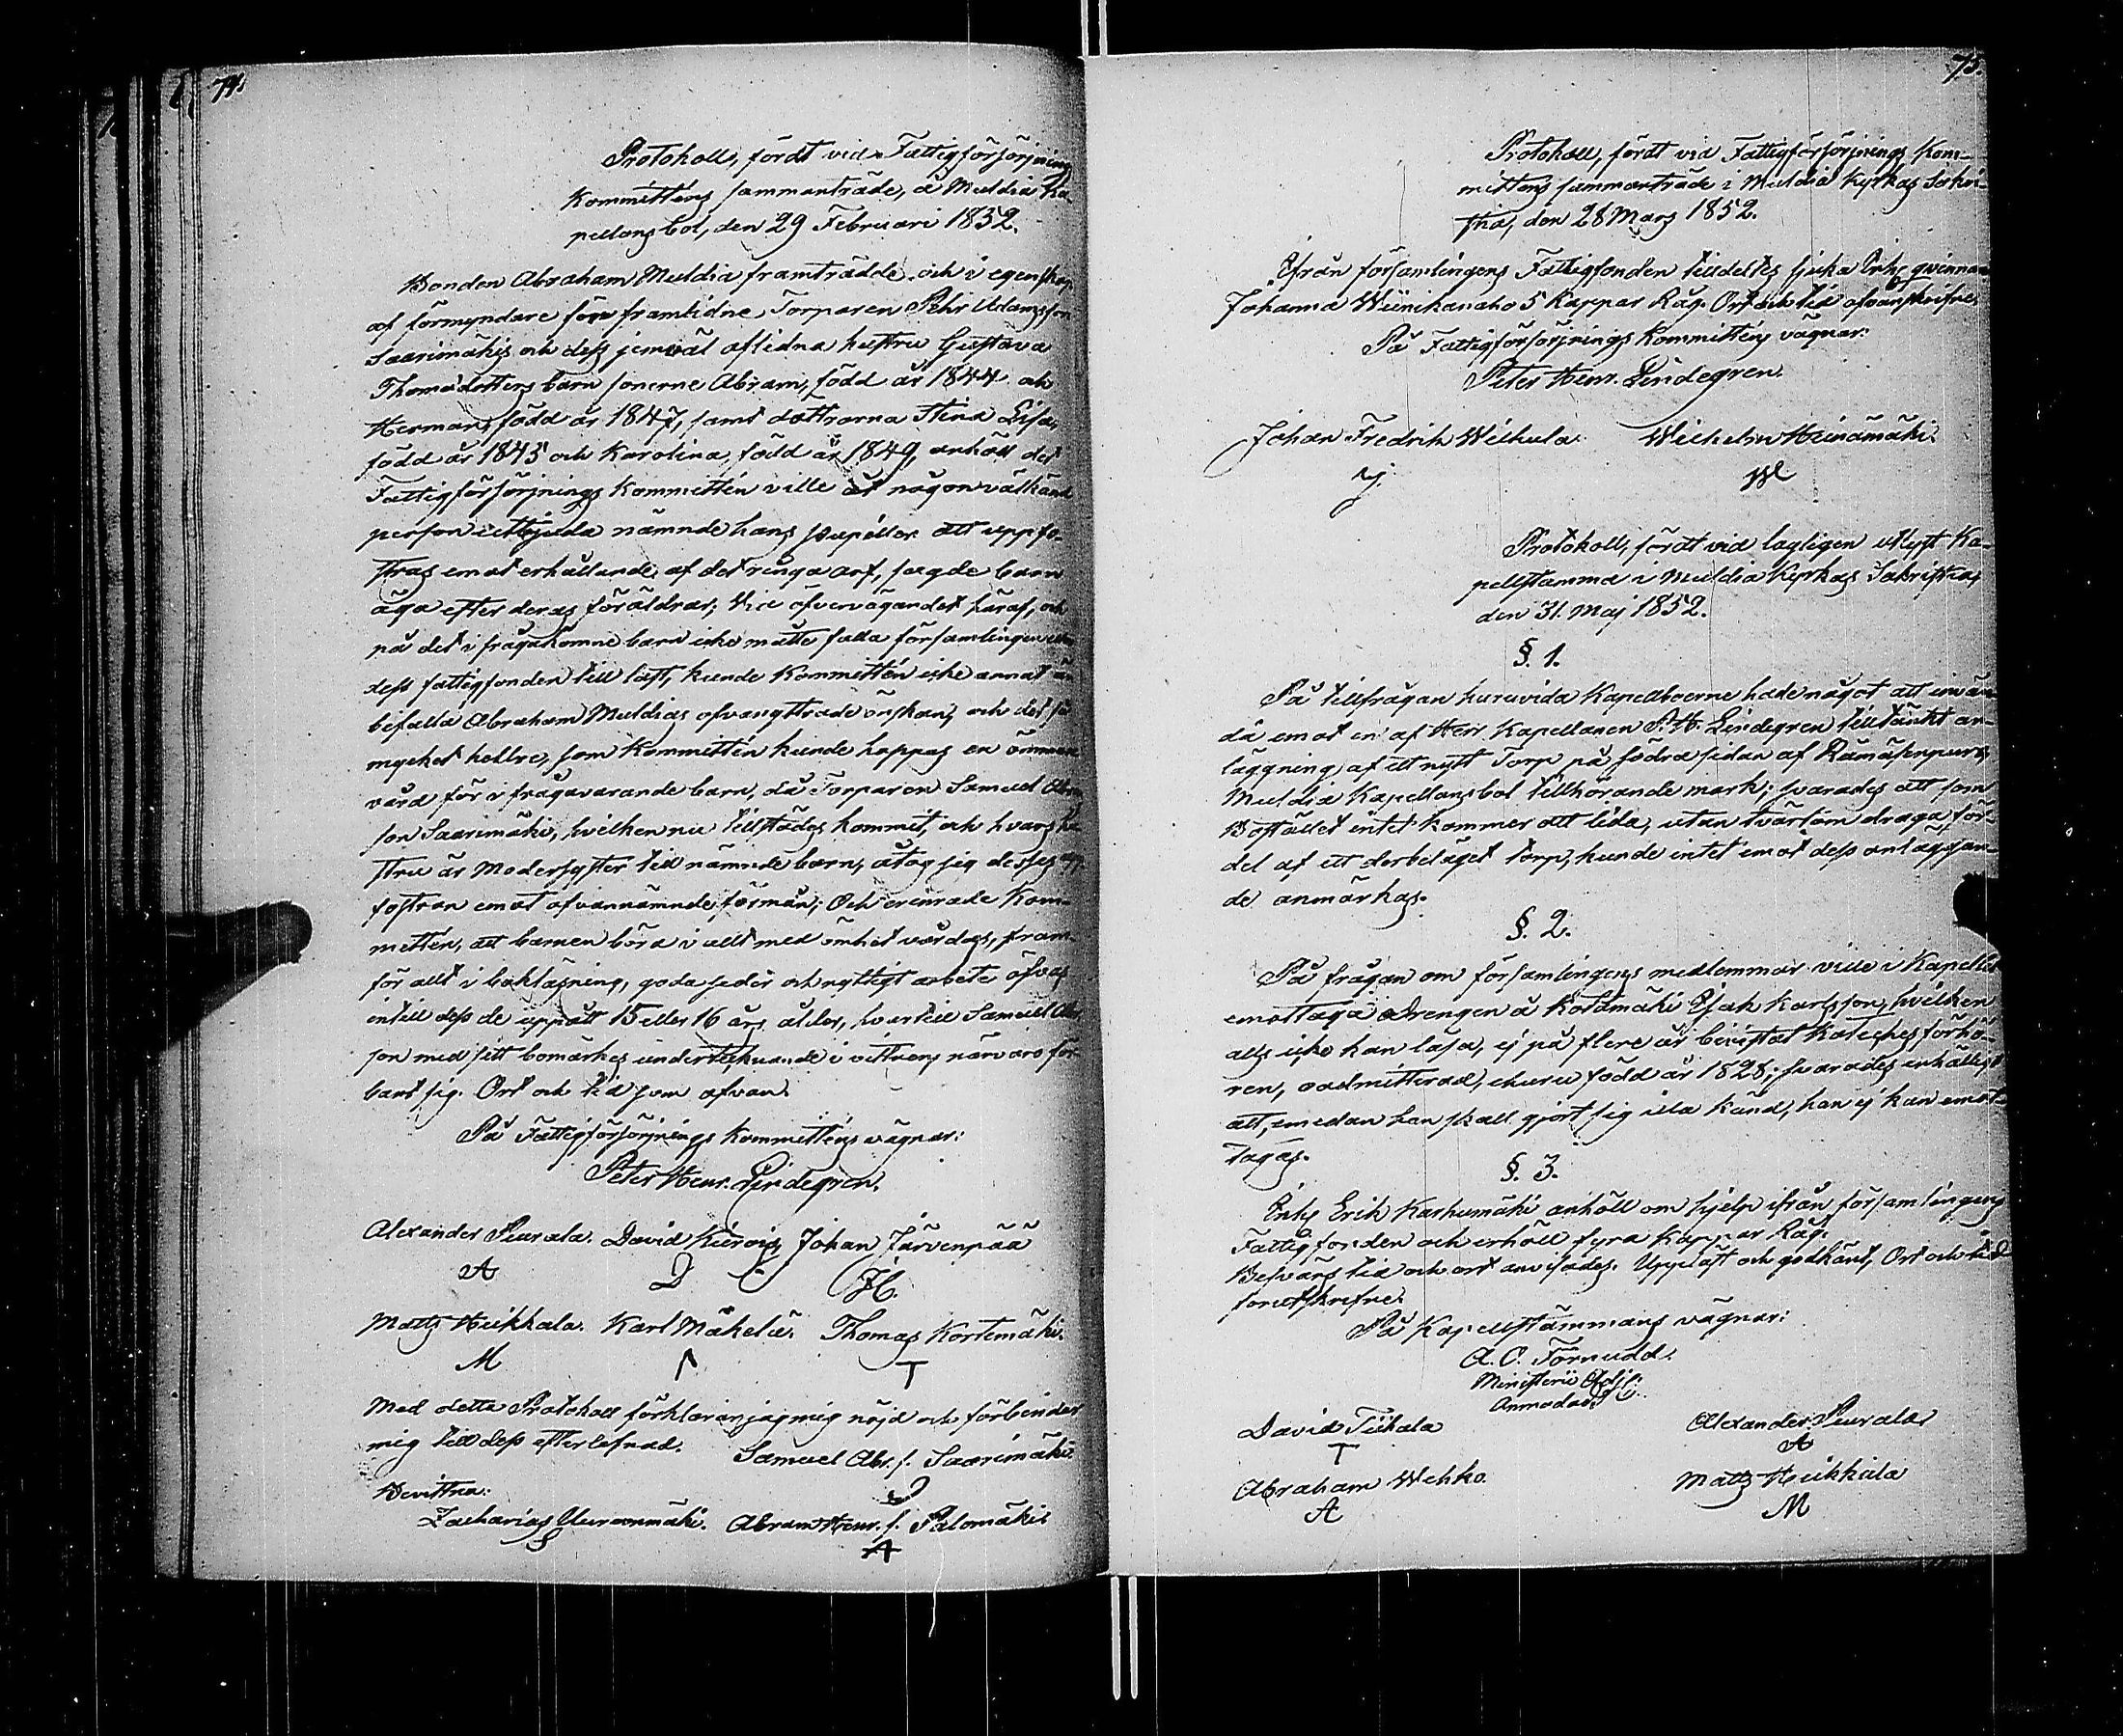 74.
Protokoll, fördt vid Fattigförsörjnings
Kommitténs sammanträde, å Muldia Ka-
pellans bol, den 29 Februari 1852.
Bonden Abraham Muldia framträdde och i egenskap
af förmyndare för framlidne Torparen Pehr Adamsson
Saarimäkis och dess jemväl aflidna hustru Gustava
Thomædotters barn sonerne Abram, född år 1844 och
Herman, född år 1847, samt döttrarna Stina Lisa,
född år 1845 och Karolina, född år 1849, anhöll det
Fattigförsörjnings Kommittén ville åt någon välkänd
person utbjuda nämnde hans pupiller att uppfo-
stras emot erhållande af det ringa arf, sagde barn
äga efter deras föräldrar; Vid öfvervägandet häraf, och
på det i frågakomne barn icke måtte falla församlingen eller
dess fattigfonden till last, kunde Kommittén icke annat än
bifalla Abraham Muldias ofvanyttrade önskan, och det så
mycket hellre, som Kommittén kunde hoppas en ömmare
vård för i frågavarande barn, då Torparen Samuel Abra
son Saarimäki, hvilken nu tillstädes kommit, och hvars hu-
stru är Modersyster till nämnde barn, åtog sig desses upp-
fostran emot ofvannämnde förmån; Och erinrade Kom-
mittén, att barnen böra i allt med ömhet vårdas, fram-
för allt i bokläsning, goda seder och nyttigt arbete öfvas
intill dess de uppnått 15 eller 16 års ålder, hvartill Samuel Abra
son med sitt bomärkes undertecknande i vittnens närvaro för-
band sig. Ort och tid som ofvan.
På Fattigförsörjnings Kommitténs vägnar:
Peter Henr. Lindegren.
Alexander Peurala. David Kiirois, Johan Järvenpää
A D H.
Matts Heikkala. Karl Mäkelä. Thomas Kortemäki.
M T
Med detta Protokoll förklarar jag mig nöjd och förbinder
mig till dess efterlefnad. Samuel Abr. s. Saarimäki.
Bevittna:
Zacharias Uuraanmäki. Abram Henr. s. Palomäki
A
75.
Protokoll, fördt vid Fattigförsörjnings Kom-
mittens sammanträde i Muldia Kyrkas Sakri-
stia, den 28 Mars 1852.
Ifrån församlingens Fattigfonden tilldeltes sjuka Inhs qvinnan
Johanna Wiinikanaho 5 Kappar Råg. Ort och tid ofvanskrifne.
På Fattigförsörjnings Kommitténs vägnar:
Peter Henr. Lindegren.
Johan Fredrik Wehula. Wilhelm Heinämäki.
Protokoll, fördt vid lagligen utlyst Ka-
pellstämma i Muldia Kyrkas Sakristia,
den 31. Maj 1852.
§. 1.
På tillfrågan huruvida Kapellboerne hade något att invän-
da emot en af Herr Kapellanen P. H. Lindegren tilltänkt an-
läggning af ett nytt Torp på södra sidan af Rämäsenpuro,
Muldia Kapellansbol tillhörande mark; svarades att som
Bostället intet kommer att lida, utan tvärtom draga för-
del af ett derbeläget torp, kunde intet emot dess anläggan-
de anmärkas.
§. 2.
På frågan om församlingens medlemmar ville i Kapellet
emottaga Drengen å Kotamäki Isak Karlsson, hvilken
alls icke kan läsa, ej på flere år bivistat Kateches förhö-
ren, oadmitterad, ehuru född år 1828; svarades enhälligt
att, emedan han skall gjort sig illa känd, han ej kan emot-
tagas.
§. 3.
Inhs Erik Karhumäki anhöll om hjelp ifrån församlingens
Fattigfonden och erhöll fyra kappar Råg.
Besvärs tid och ort anvisades. Uppläst och godkänt, Ort och tid
förutskrefne.
På Kapellstämmans vägnar:
A. C. Törnudd.
Ministerii Adj:
Anmodad
David Tiihala Alexander Peurala
T A
Abraham Wehko. Matts Heikkala
A M